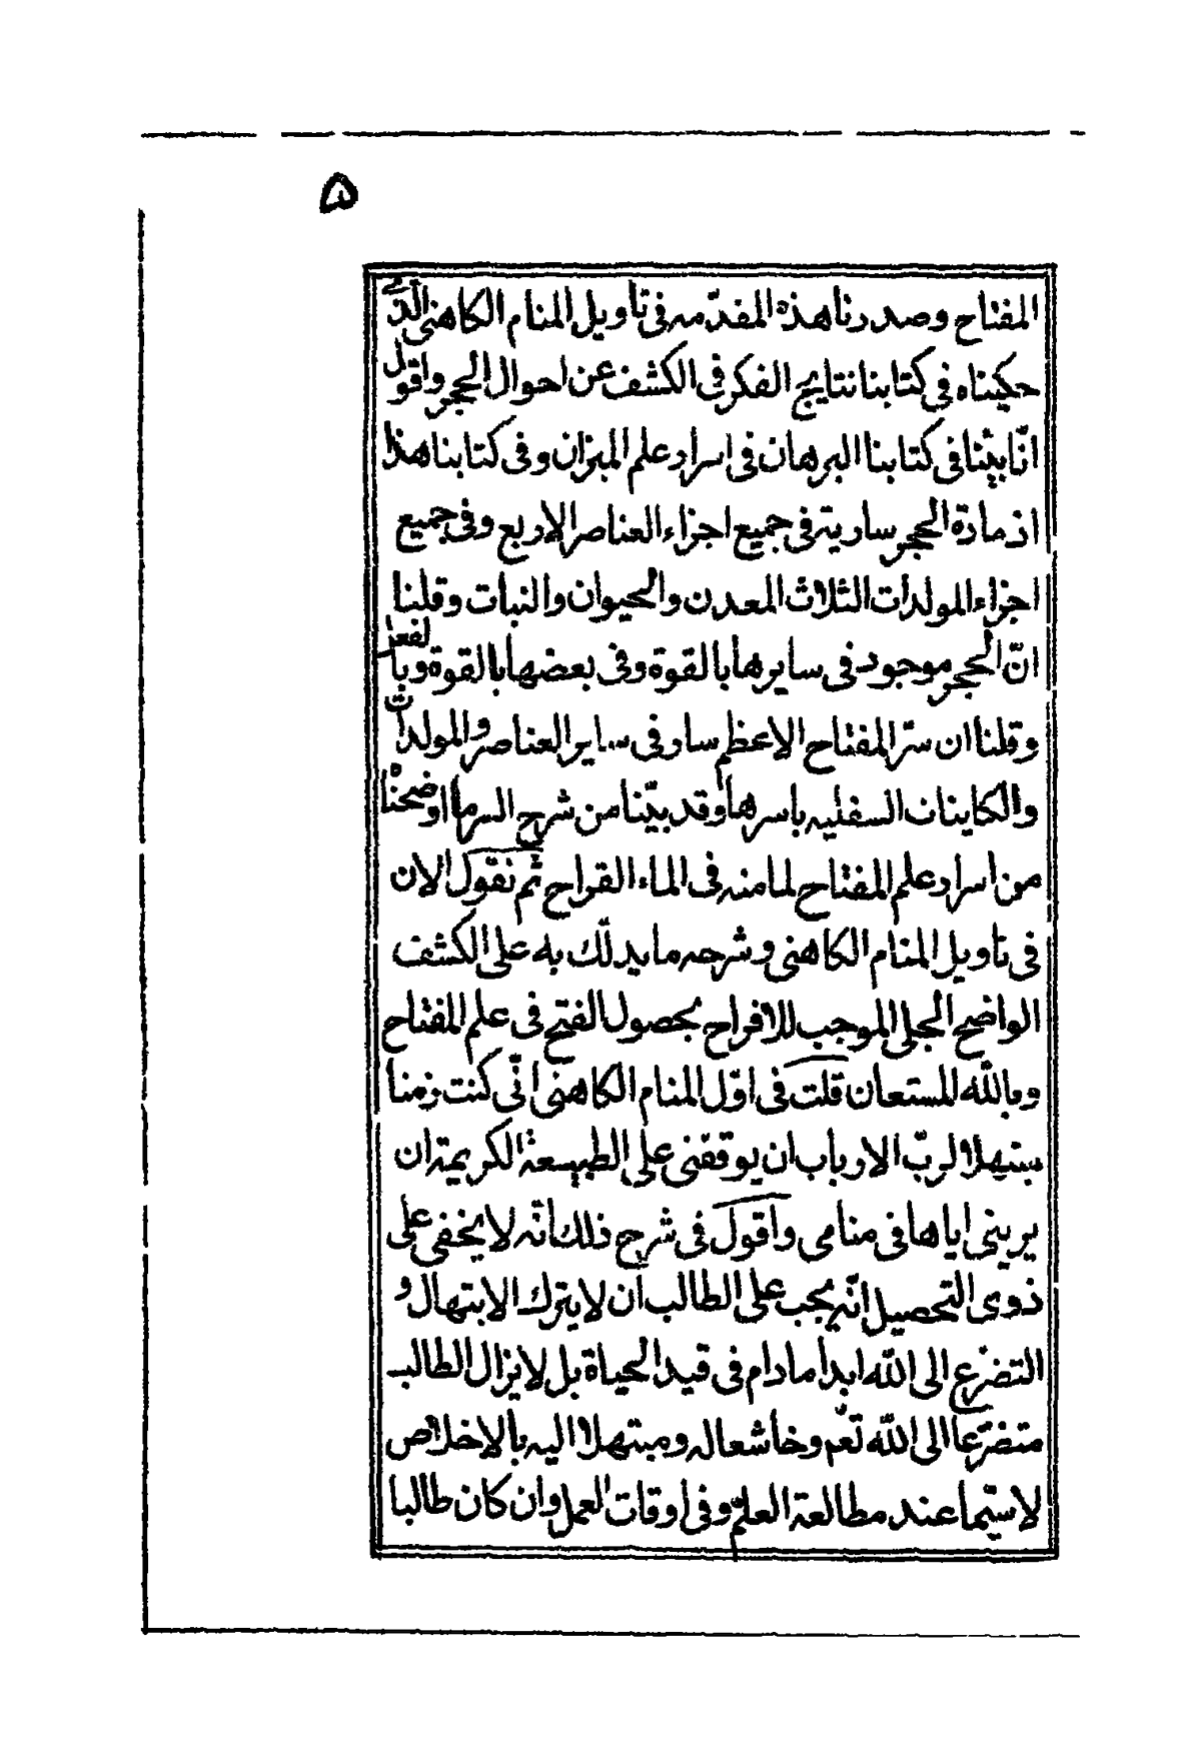 ۵
المفتاح وصدرنا هذه المقدّمه فى تأويل المنام الكاهنى الذى
حكيناه فى كتابنا نتايج الفكر فى الكشف عن احوال الحجر واقول
انّا بيّنا فى كتابنا البرهان فى اسرار علم الميزان وفى كتابنا هذا
اذ مادة الحجر سارية فى جميع اجزاء العناصر الاربع وفى جميع
اجزاء المولدات الثلاث المعدن والحيوان والنبات وقلنا
انّ الحجر موجود فى سايرها بالقوة وفى بعضها بالقوة وبالفعل
وقلنا ان سرّ المفتاح الاعظم سار فى ساير العناصر والمولدات
والكاينات السفليه باسرها وقد بيّنا من شرح السر ما اوضحناه
من اسرار علم المفتاح لما منه فى الماء القراح ثم نقول الان
فى تاويل المنام الكاهنى وشرحه ما يدلّك به على الكشف
الواضح الجلى الموجب للافراح بحصول الفتح فى علم المفتاح
وبالله المستعان قلت فى اوّل المنام الكاهنى انّى كنت زمنا
مبتهلا لربّ الارباب ان يوقفنى على الطبيعة الكريمة ان
يرينى اياها فى منامى واقول فى شرح ذلك انّه لا يخفى على
ذوى التحصيل انّه يجب على الطالب ان لا يترك الابتهال و
التضرّع الى الله ابدا مادام فى قيد الحياة بل لا يزال الطالب
متضرّعا الى الله تعم وخاشعا له ومبتهلا اليه بالاخلاص
لا سيّما عند مطالعة العلم وفى اوقات العمل وان كان طالبا